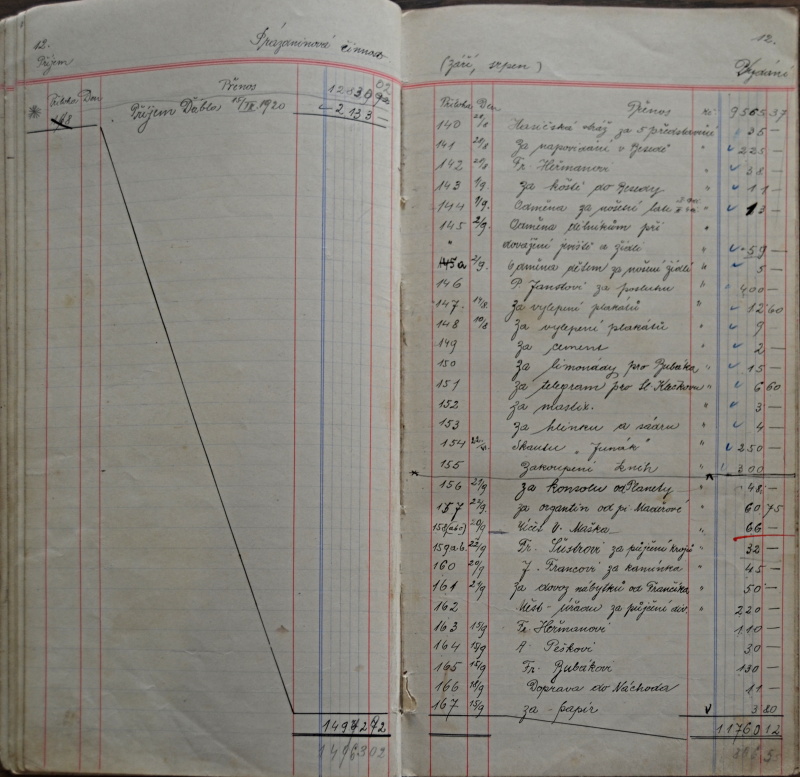 12.
Prázdninová činnost
Příjem
Příloha Den
Přenos 12830 92 02
168 Příjem Ďábla 15/IX 1920 2133 —
1497272
1496302
12.
(září, srpen)
Vydání
Příloha Den Přenos Kč 9565 37
140 20/8 Hasičská stráž za 5 představení " 35 —
141 20/8 Za napovídání v Besedě " 225 —
142 20/8 Fr. Heřmanovi " 38 —
143 1/9 Za košťě do Besedy " 11 —
144 1/9 Odměna za nošení latí " 13 —
145 2/9 Odměna dělníkům při "
" dovážení jeviště a židlí " 59 —
145a 2/9. Odměna dětem za nošení židlí " 5 —
146 P. Janstovi za posluhu " 400 —
147 14/8 Za vylepení plakátů " 12 60
148 10/8 Za vylepení plakátů " 9
149 Za cement " 2 —
150 Za limonády pro Bubáka " 15 —
151 Za telegram pro Sl. Klečkovu " 6 60
152 Za mastix. " 3 —
153 Za hlinku a sádru " 4 —
154 Skautu „Junák" " 250 —
155 Zakoupení knih " 300
156 21/9 Za konsolu od Planety 48 —
157 22/9 Za organtin od pí. Macářové " 60 75
158(abc) 20/9 Účet V. Maška " 66 —
159a.b. 22/9 Fr. Šustrovi za půjčení krojů " 32 —
160 20/9 J. Francovi za kamínka " 45 —
161 21/9 Za dovoz nábytků od Frančíka " 50 —
162 Měst. úřadu za půjčení div. " 220 —
163 15/9 Fr. Heřmanovi 110 —
164 15/9 A. Peškovi 30 —
165 15/9 Fr. Bubákovi 130 —
166 15/9 Doprava do Náchoda 11 —
167 15/9 za - papír 3 80
11760 12